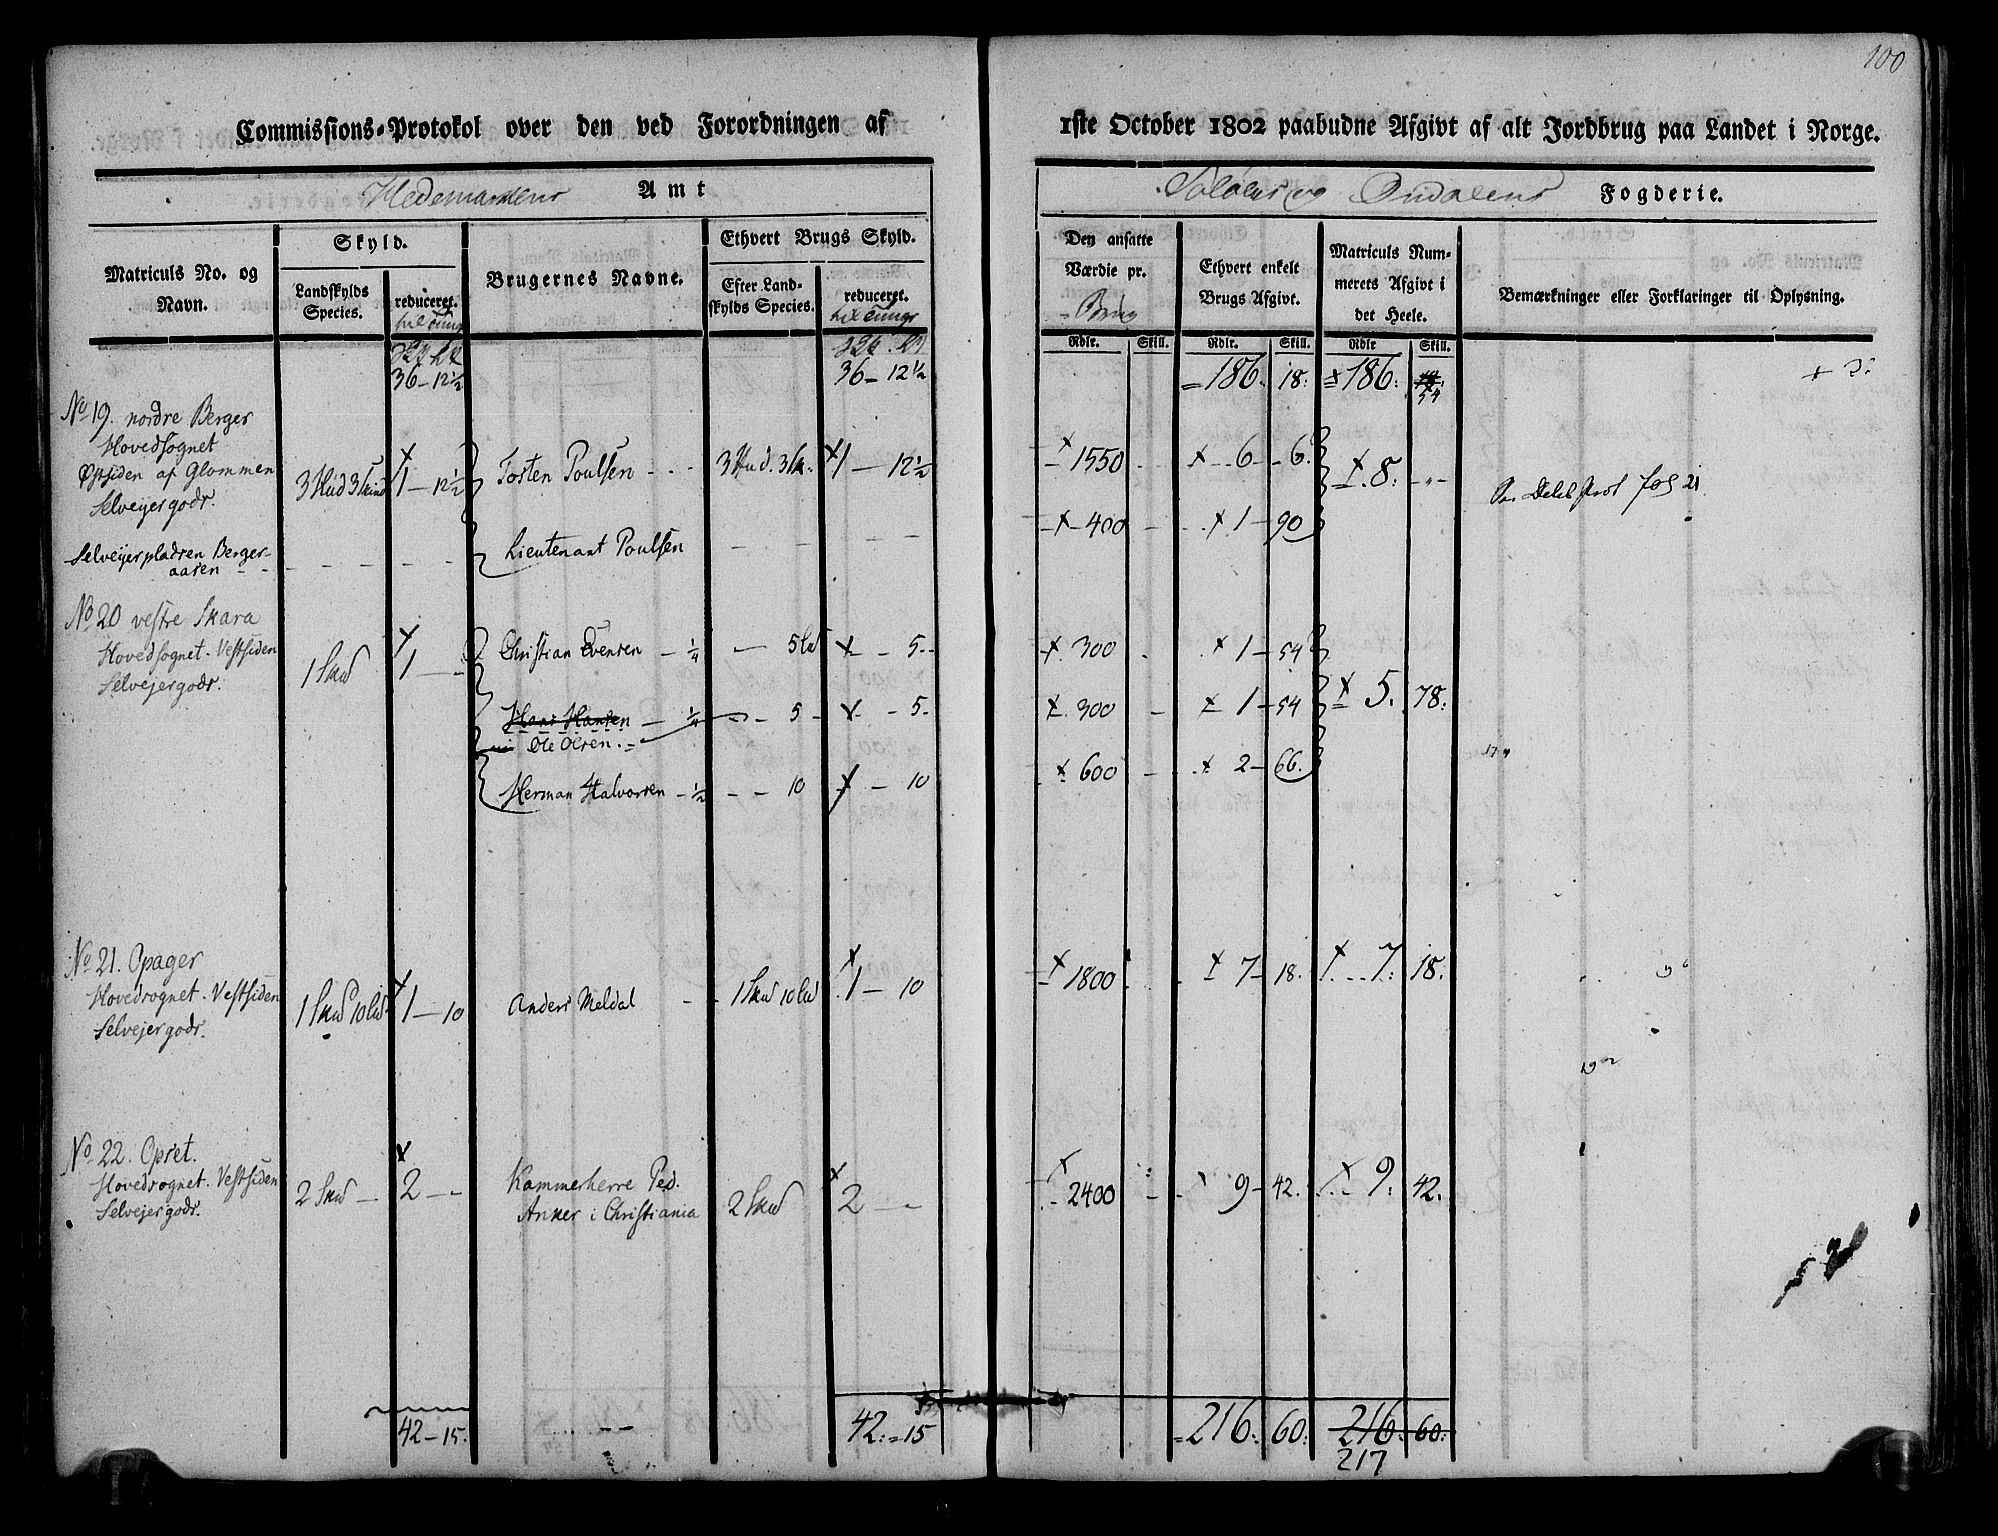 100
Commissions-Protokol over den ved Forordningen af 1ste October 1802 paabudne Afgivt af alt Jordbrug paa Landet i Norge.
Hedemarkens Amt
Soløer og Oudalens Fogderie.
Matriculs No. og Navn.
Skyld.
Landskylds Species.
reduceret.
til Tunge
Brugernes Navne.
Ethvert Brugs Skyld.
Efter Landskylds Species.
reduceret.
til Tunge
Den ansatte Værdie pr. Brug
Rdlr. Skill.
Ethvert enkelt Brugs Afgivt.
Rdlr. Skill.
Matriculs Nummerets Afgivt i det Heele.
Rdlr Skill.
Bemærkninger eller Forklaringer til Oplysning.
36 - 12½ 36 - 12½ 186. 18: 186: 54
No 19. nordre Berger
Hovedsognet
Østsiden af Glommen 3 Hud 3 Skind 1 - 12½ Tosten Poulsen - - - 3 Hud. 3 Sk. 1 - 12½ 1550 6 - 6. 8: - " -
Selveyergods.
Selveyerpladsen Berger-
aasen - - Lieutenant Poulsen - - - 400 1 - 90
No 20 vestre Skara
Hovedsognet. Vestsiden 1 Skd 1 - - Christian Evensen - ¼ - 5 Ld - 5 - 300 1 - 54
Selvejergods.
Hans Hansen - ¼ - 5 - - 5 - 300 1 - 54 5. 78:
Ole Olsen.
Herman Halvorsen - ½ - - 10 - 10 600 2 - 66.
No 21. Opager
Hovedsognet. Vestsiden 1 Skd 10 Ld 1 - 10 Anders Meldal - - 1 Skd 10 Ld 1 - 10 1800 7 - 18. 7: 18.
Selvejergods.
No 22. Opset.
Hovedsognet. Vestsiden 2 Skd - 2 - - Kammerherre Ped. 2 Skd 2 - 2400 9 - 42. 9. 42.
Selvejergods. Anker i Christiania
42 - 15. 42. = 15 216. 60: 216. 60:
217